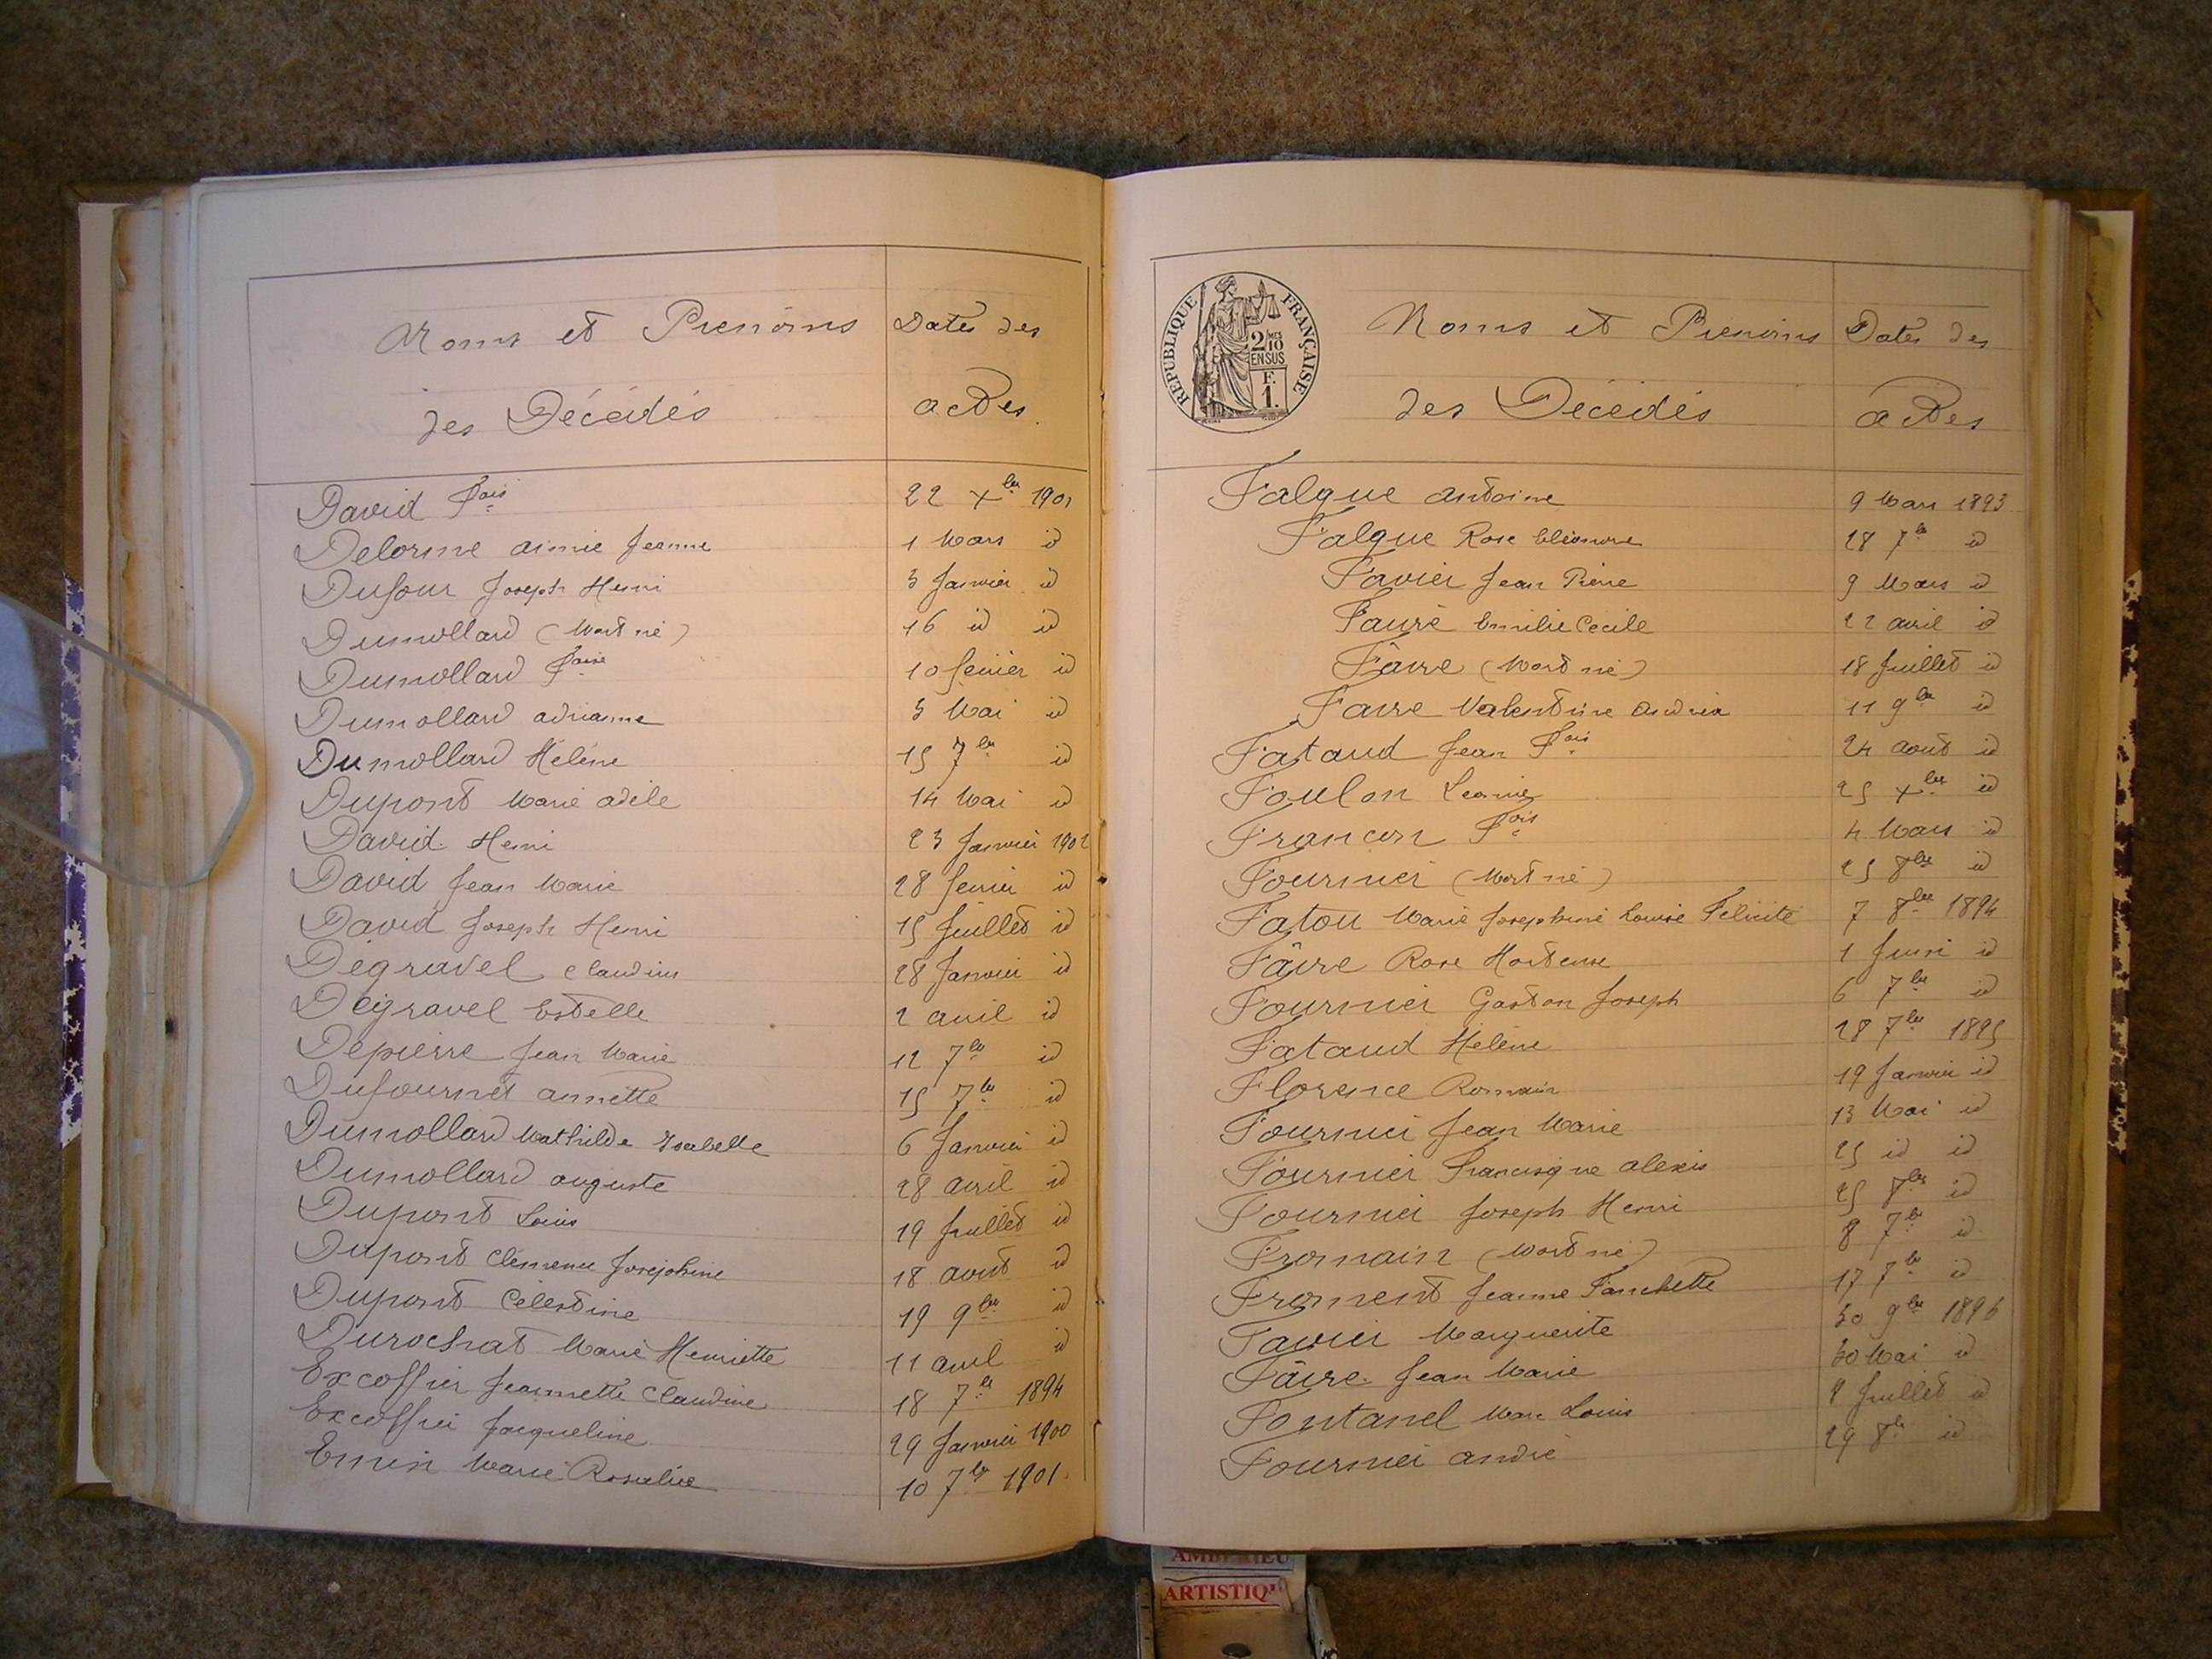 Noms et Prenoms
des Décédés
Dates des
actes.
David Fois 22 Xbre 1901
Delorme aimée Jeanne 1 Mars id
Dufour Joseph Henri 3 Janvier id
Dumollard (Mort né) 16 id id
Dumollard Foise 10 fevrier id
Dumollard adrianne 3 Mai id
Dumollard Héléne 15 7bre id
Dupont Marie adèle 14 Mai id
David Henri 23 Janvier 1902
David Jean Marie 28 fevrier id
David Joseph Henri 15 Juillet id
Dégravel Claudius 28 Janvier id
Dégravel Estelle 2 avril id
Depierre Jean Marie 12 7bre id
Dufournet annette 15 7bre id
Dumollard Mathilde Isabelle 6 Janvier id
Dumollard auguste 28 avril id
Dupont Louis 19 Juillet id
Dupont Clémence Joséphine 18 aout id
Dupont Célestine 19 9bre id
Durochat Marie Henriette 11 avril id
Excoffier Jeannette Claudine 18 7bre 1894
Excoffier Jacqueline 29 Janvier 1900
Emin Marie Rosalie 10 7bre 1901.
REPUBLIQUE FRANÇAISE
2/10 MES
EN SUS
F.
1.
Noms et Prenoms
des Décédés
Dates des
actes
Falque antoine 9 Mars 1893
Falque Rose Eléonore 28 7bre id
Favier Jean Pierre 9 Mars id
Faure Emilie Cécile 22 avril id
Favre (Mort né) 18 Juillet id
Favre Valentine Andréa 11 9bre id
Fataud Jean Fois 24 aout id
Foulon Leonie 25 Xbre id
Françon Fois 4 Mars id
Fournier (Mort né) 25 8bre id
Fatou Marie Joséphine Louise Félicité 7 8bre 1894
Fâvre Rose Hortense 1 Juin id
Fournier Gaston Joseph 6 7bre id
Fataud Hélène 28 7bre 1895
Florence Romain 19 Janvier id
Fournier Jean Marie 13 Mai id
Fournier Francisque alexis 25 id id
Fournier Joseph Henri 25 8bre id
Fromain (Mort né) 8 7bre id
Froment Jeanne Fanchette 17 7bre id
Favier Marguerite 30 9bre 1896
Fâvre Jean Marie 30 Mai id
Fontanel Marc Louis 8 Juillet id
Fournier andré 29 8bre id
AMBERIEU
ARTISTIQ